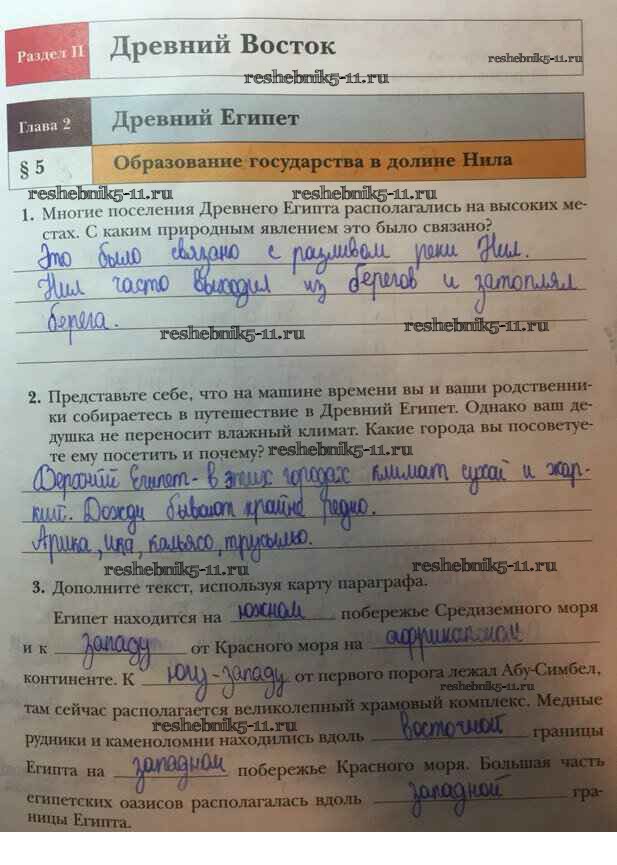 Раздел II
Древний Восток
reshebnik5-11.ru
reshebnik5-11.ru
Глава 2
Древний Египет
§ 5
Образование государства в долине Нила
reshebnik5-11.ru
reshebnik5-11.ru
1. Многие поселения Древнего Египта располагались на высоких ме-
стах. С каким природным явлением это было связано?
Это было связано с разливом реки Нил.
Нил часто выходил из берегов и затоплял
берега.
reshebnik5-11.ru
reshebnik5-11.ru
2. Представьте себе, что на машине времени вы и ваши родственни-
ки собираетесь в путешествие в Древний Египет. Однако ваш де-
душка не переносит влажный климат. Какие города вы посоветуе-
те ему посетить и почему? reshebnik5-11.ru
Верхний Египет - в этих городах климат сухой и жар-
кий. Дожди бывают крайне редко.
Арика, ика,
reshebnik5-11.ru
reshebnik5-11.ru
3. Дополните текст, используя карту параграфа.
Египет находится на южном побережье Средиземного моря
и к западу от Красного моря на африканском
континенте. К югу-западу от первого порога лежал Абу-Симбел,
reshebnik5-11.ru
там сейчас располагается великолепный храмовый комплекс. Медные
reshebnik5-11.ru
рудники и каменоломни находились вдоль восточной границы
Египта на западном побережье Красного моря. Большая часть
египетских оазисов располагалась вдоль западной гра-
ницы Египта.